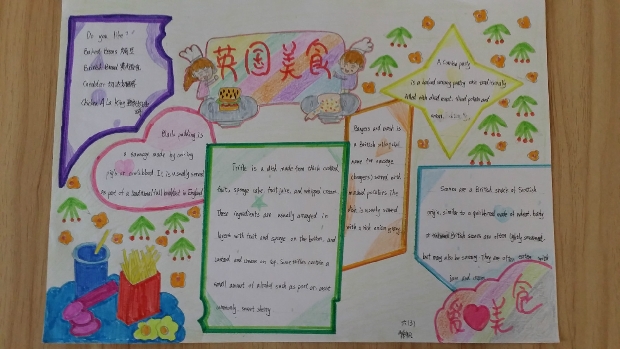 英国美食
Do you like?
Baked beans
Baked bread
Cumberland
Chicken A La King
Black pudding is
a sausage made by
pig's blood. It is usually served
as part of a traditional full breakfast in England
Trifle is a dish made from thick custard,
fruit, sponge cake, fruit juice, and whipped cream.
These ingredients are usually arranged in
layers with fruit and sponge on the bottom, and
custard and cream on top. Some trifles contain a
small amount of alcohol such as port, or more
commonly, sweet sherry
Bangers and mash is
a British
name for sausage
(bangers) served with
mashed potatoes. The
dish is usually served
with a rich onion gravy
A Cornish pasty
is a baked savoury pastry
filled with diced meat, sliced potato and
onion.
Scones are a British snack of Scottish
origin, similar to a quickbread made of wheat, barley
or oatmeal. British scones are often lightly sweetened,
but may also be savoury. They are often eaten with
jam and cream.
爱美食